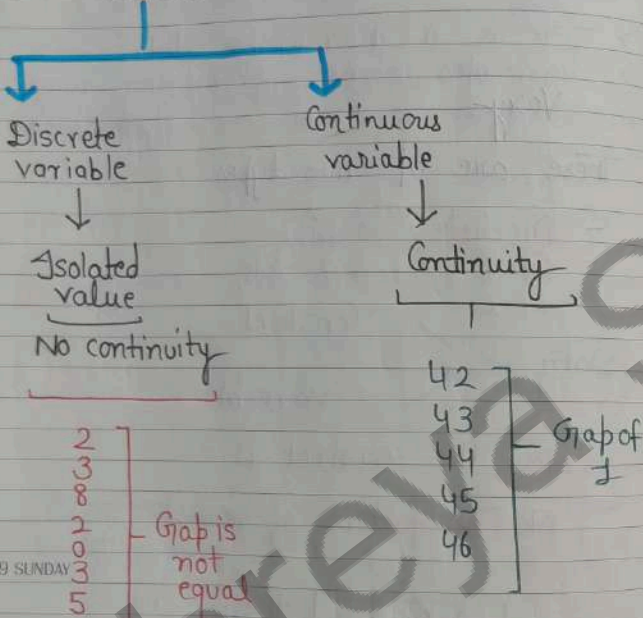 Discrete
variable
Isolated
value
No continuity
2
3
8
2
0
3
5
Gap is
not
equal
9 SUNDAY
Continuous
variable
Continuity
42
43
44
45
46
Gap of
1